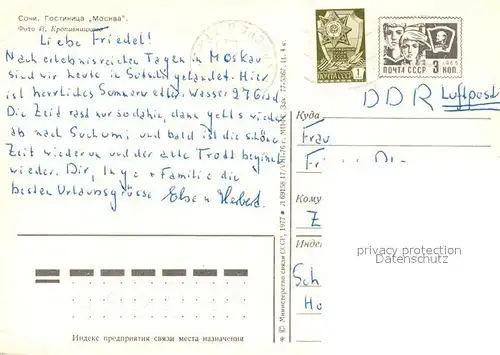 Сочи. Гостиница „Москва".
Фото И. Кропивницкого
Liebe Friedel!
Nach erlebnisreichen Tagen in Moskau
sind wir heute in Sotschi gelandet. Hier
ist herrliches Sommerwetter. Wasser 27 Grad.
Die Zeit rast nur so dahin, dann geht's wieder
ab nach Suchumi und bald ist die schöne
Zeit wieder um und der alte Trott beginnt
wieder. Dir, Inge + Familie die
besten Urlaubsgrüsse Elke u Herbert.
Индекс предприятия связи места назначения
© Министерство связи СССР, 1977
ПОЧТА СССР 1
1966
ПОЧТА СССР 3 КОП.
DDR Luftpost
Куда
Frau
Кому
Z
Индекс
privacy protection
Sch
Ho